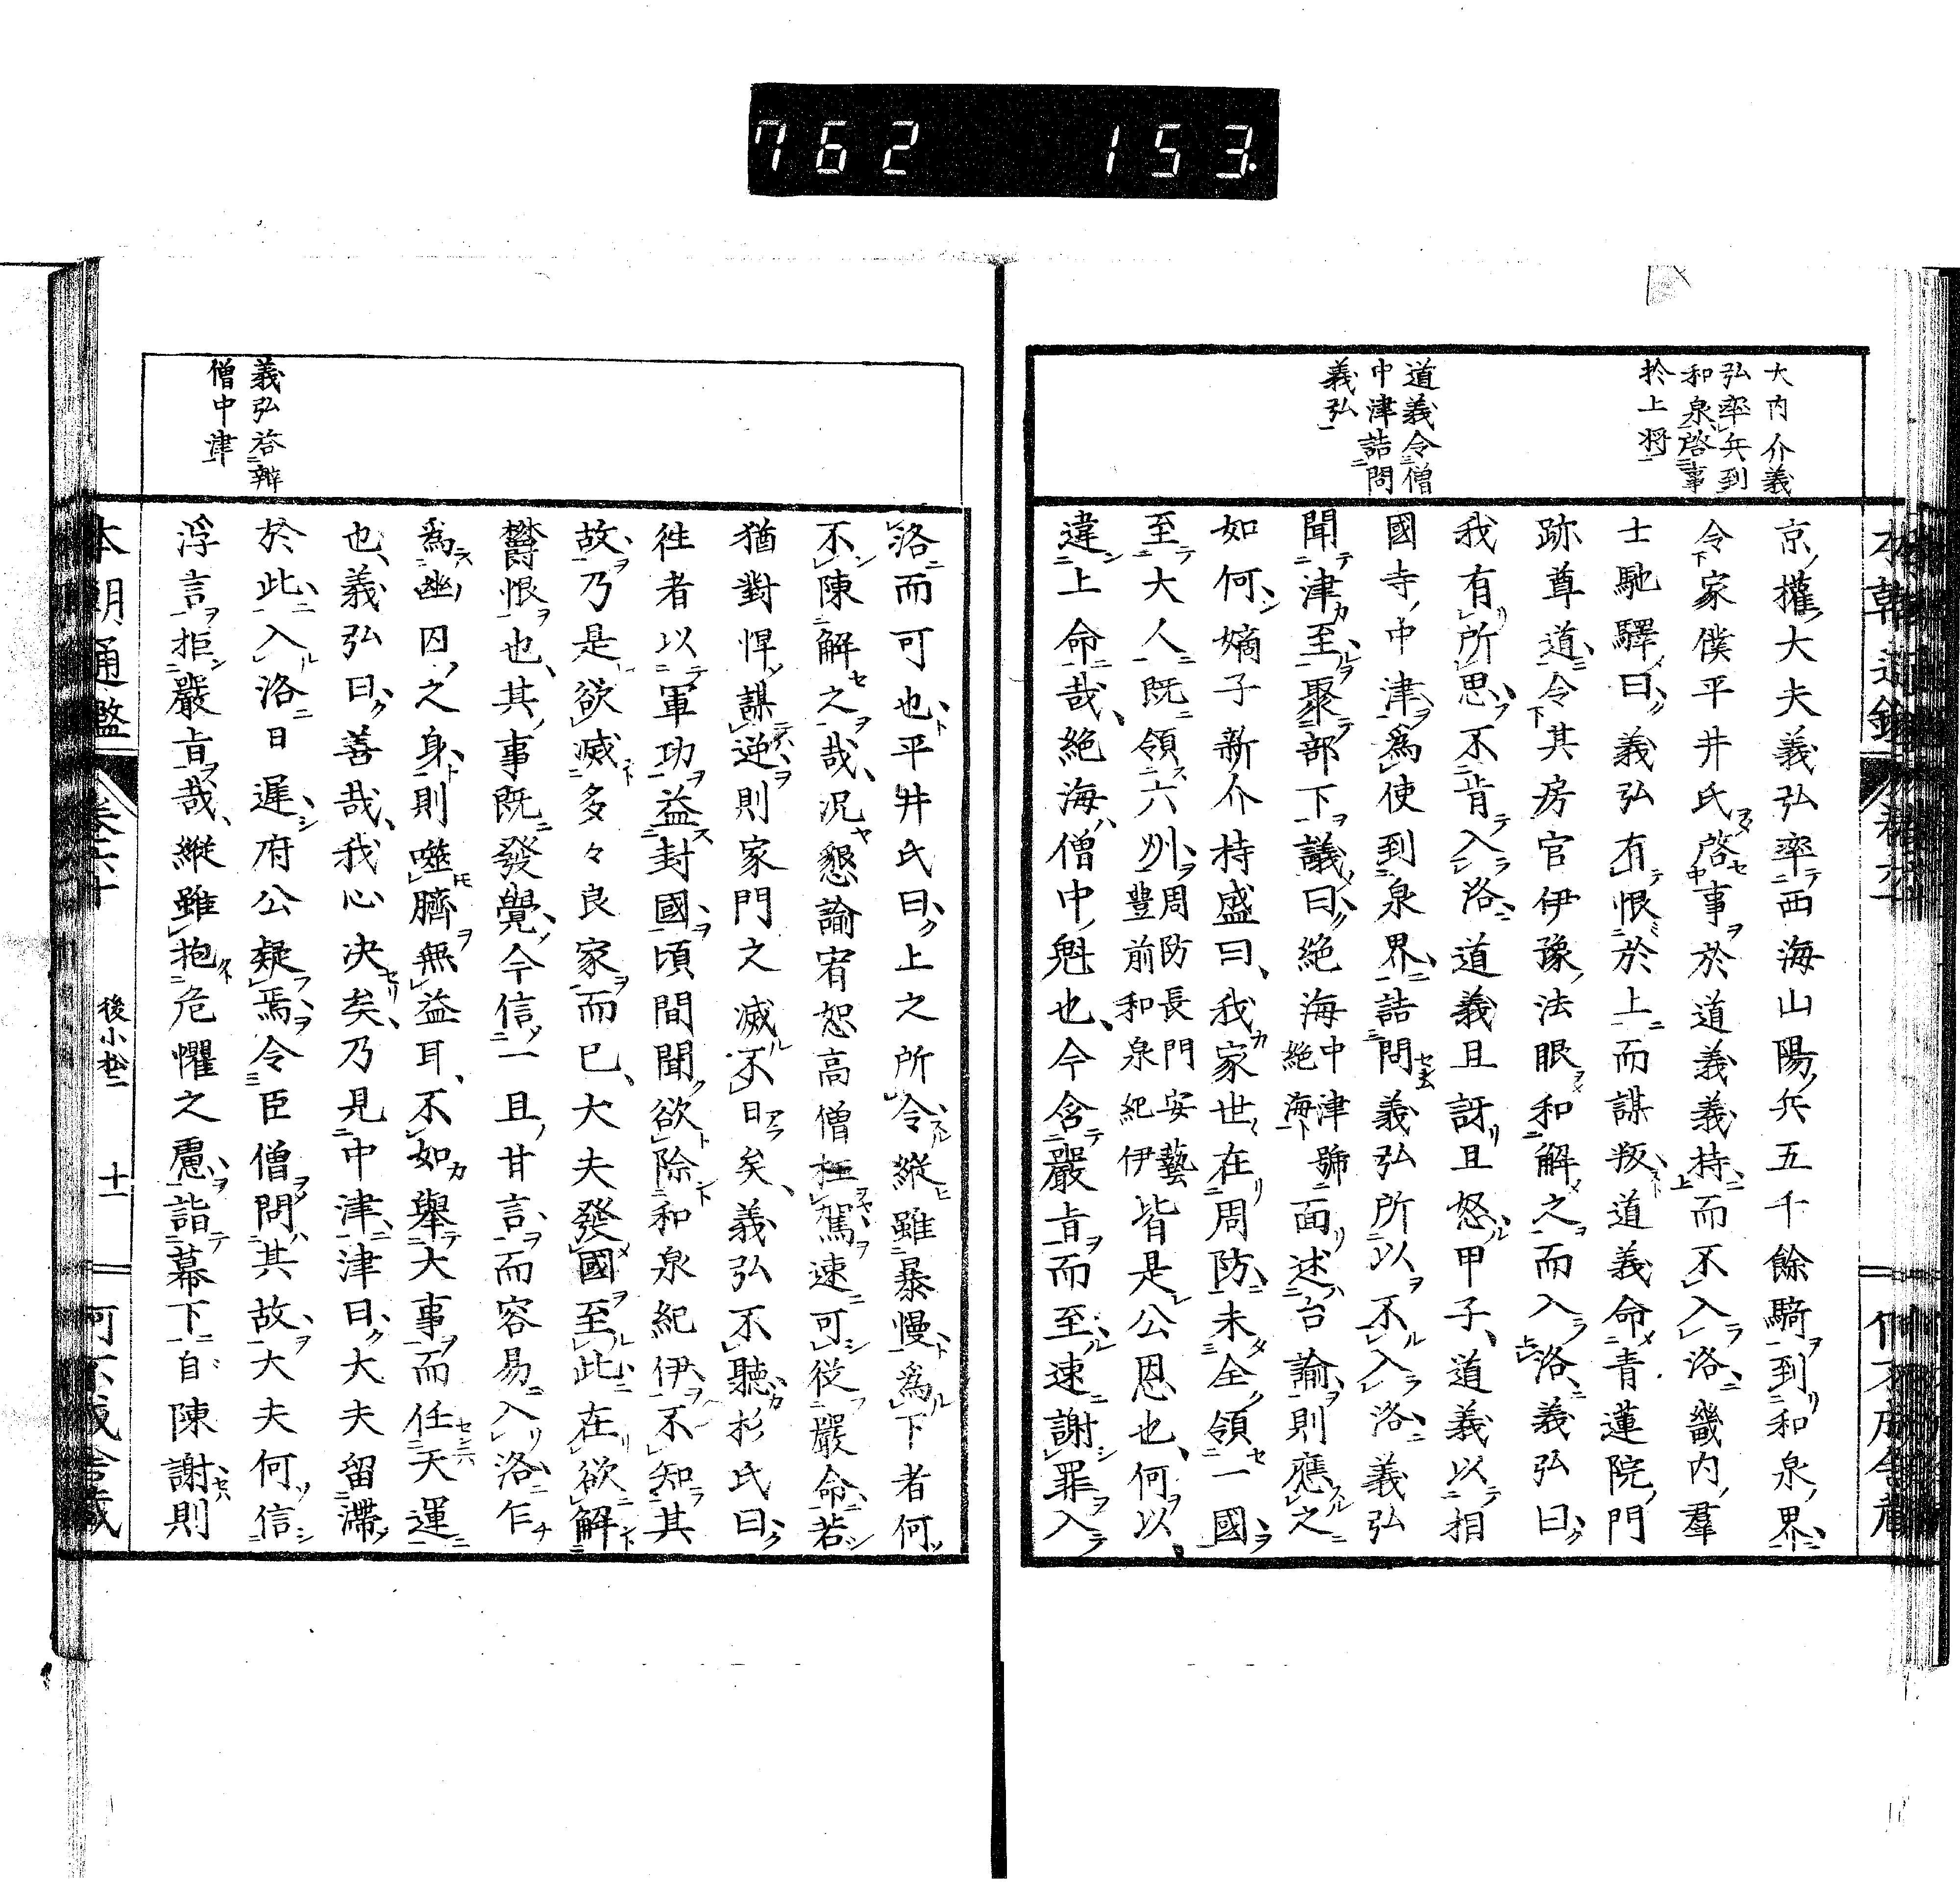 762 153
大内介義
弘率兵到
和泉啓事
於上将
道義令僧
中津詰問
義弘
京權大夫義弘率西海山陽兵五千餘騎到和泉界
令家僕平井氏啓事於道義義持而不入洛畿内羣
士馳驛曰義弘有恨於上而謀叛道義命青蓮院門
跡尊道令其房官伊豫法眼和解之而入洛義弘曰
我有所思不肯入洛道義且訝且怒甲子道義以相
國寺中津爲使到泉界詰問義弘所以不入洛義弘
聞津至聚部下議曰絶海中津號絶海面述台諭則應之
如何嫡子新介持盛曰我家世在周防未全領一國
至大人既領六州周防長門安藝豊前和泉紀伊皆是公恩也何以
違上命哉絶海僧中魁也今含嚴旨而至速謝罪入
義弘啓辯
僧中津
洛而可也平井氏曰上之所令縱雖暴慢爲下者何
不陳解之哉况懇諭宥恕高僧枉駕速可從嚴命若
猶對悍謀逆則家門之滅不日矣義弘不聽杉氏曰
徃者以軍功益封國頃間聞欲除和泉紀伊不知其
故乃是欲滅多々良家而已大夫發國至此在欲解
欝恨也其事既發覺今信一旦甘言而容易入洛乍
爲幽囚之身則噬臍無益耳不如舉大事而任天運
也義弘曰善哉我心决矣乃見中津津曰大夫留滯
於此入洛日遲府公疑焉令臣僧問其故大夫何信
浮言拒嚴旨哉縱雖抱危懼之慮詣幕下自陳謝則
本朝通鑑 卷六十 後小松二 十一